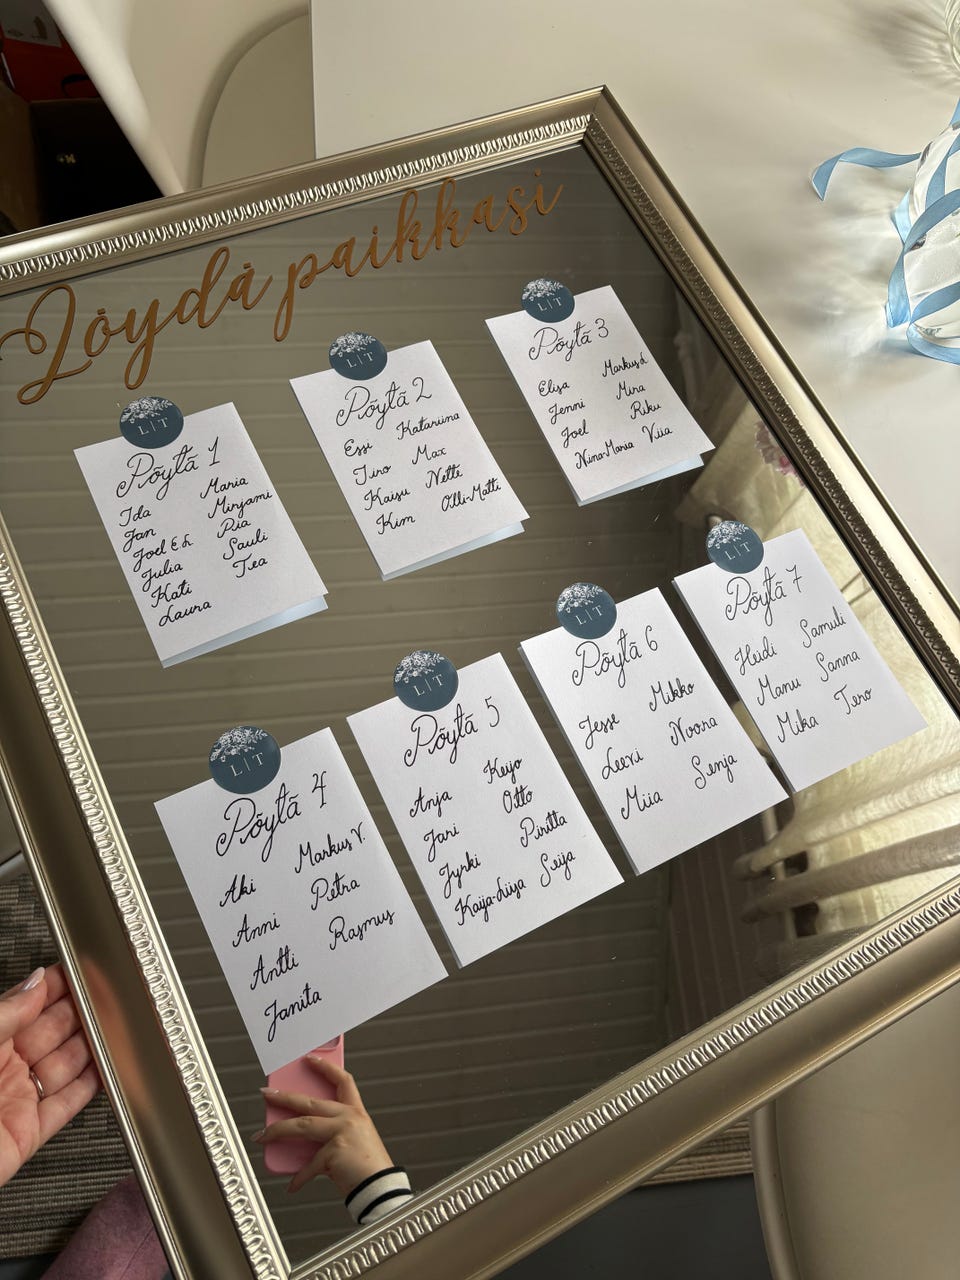 Löydä paikkasi
L|T
Pöytä 1
Ida Maria
Jan Mirjami
Joel E-L Piia
Julia Sauli
Kati Tea
Laura
L|T
Pöytä 2
Essi Katariina
Jiro Max
Kaisu Netti
Kim Olli-Matti
L|T
Pöytä 3
Elisa Markus L
Jenni Mira
Joel Riku
Niina-Maria Viia
L|T
Pöytä 4
Aki Markus V.
Anni Petra
Antti Rasmus
Janita
L|T
Pöytä 5
Anja Keijo
Jari Otto
Jyrki Piritta
Kaija-Liisa Seija
L|T
Pöytä 6
Jesse Mikko
Leevi Noora
Miia Senja
L|T
Pöytä 7
Heidi Samuli
Manu Sanna
Mika Tero